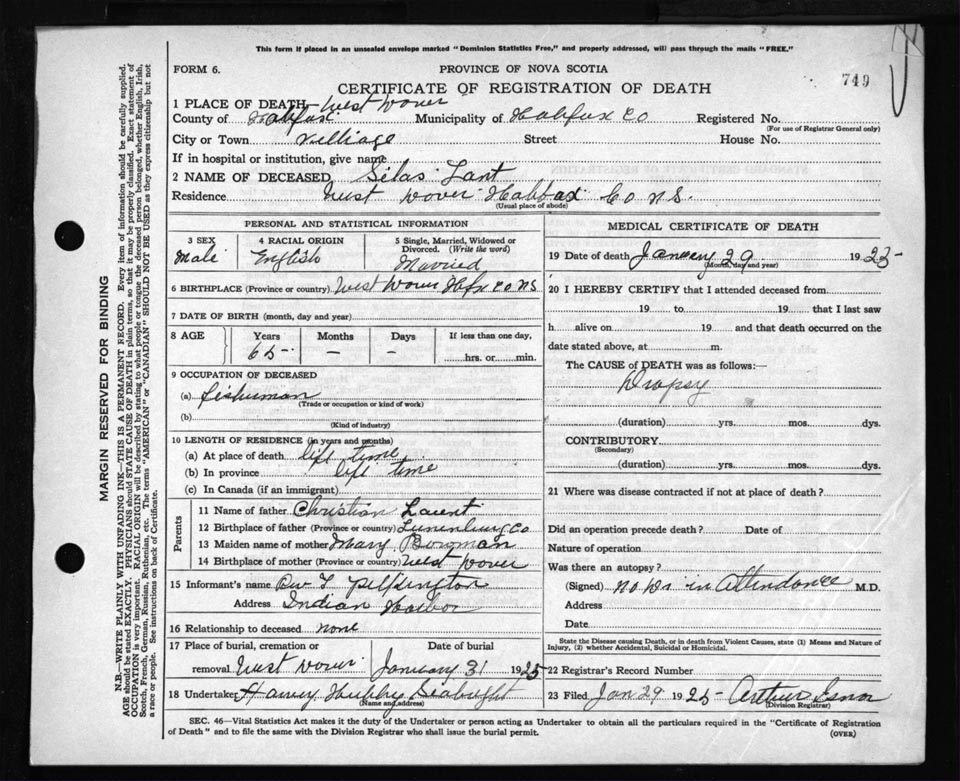 This form if placed in an unsealed envelope marked "Dominion Statistics Free," and properly addressed, will pass through the mails "FREE."
FORM 6.
PROVINCE OF NOVA SCOTIA
749
CERTIFICATE OF REGISTRATION OF DEATH
1 PLACE OF DEATH West Dover
County of Halifax Municipality of Halifax Co Registered No.
(For use of Registrar General only)
City or Town Villiage Street House No.
If in hospital or institution, give name
2 NAME OF DECEASED Silas Lant
Residence West Dover Halifax Co N.S.
(Usual place of abode)
PERSONAL AND STATISTICAL INFORMATION
3 SEX Male
4 RACIAL ORIGIN English
5 Single, Married, Widowed or Divorced. (Write the word) Married
6 BIRTHPLACE (Province or country) West Dover Hfx Co NS
7 DATE OF BIRTH (month, day and year)
8 AGE Years Months Days If less than one day,
65 - - hrs. or min.
9 OCCUPATION OF DECEASED
(a) fisherman
(Trade or occupation or kind of work)
(b)
(Kind of industry)
10 LENGTH OF RESIDENCE (in years and months)
(a) At place of death life time
(b) In province life time
(c) In Canada (if an immigrant)
Parents
11 Name of father Christian Laurent
12 Birthplace of father (Province or country) Lunenburg Co
13 Maiden name of mother Mary Bowman
14 Birthplace of mother (Province or country) West Dover
15 Informant's name
Address Indian Harbor
16 Relationship to deceased none
17 Place of burial, cremation or Date of burial
removal West Dover January 31 1925
18 Undertaker Harvey Hubley Seabright
(Name and address)
MEDICAL CERTIFICATE OF DEATH
19 Date of death January 29 1925
(Month, day and year)
20 I HEREBY CERTIFY that I attended deceased from
19 to 19 that I last saw
h alive on 19 and that death occurred on the
date stated above, at m.
The CAUSE of DEATH was as follows:—
Dropsy
(duration) yrs. mos. dys.
CONTRIBUTORY
(Secondary)
(duration) yrs. mos. dys.
21 Where was disease contracted if not at place of death?
Did an operation precede death? Date of
Nature of operation
Was there an autopsy?
(Signed) No Dr in Attendance M.D.
Address
Date
State the Disease causing Death, or in death from Violent Causes, state (1) Means and Nature of
Injury, (2) whether Accidental, Suicidal or Homicidal.
22 Registrar's Record Number
23 Filed Jan 29 1925 Arthur Isnor
(Division Registrar)
SEC. 46—Vital Statistics Act makes it the duty of the Undertaker or person acting as Undertaker to obtain all the particulars required in the "Certificate of Registration
of Death" and to file the same with the Division Registrar who shall issue the burial permit.
(OVER)
MARGIN RESERVED FOR BINDING
N.B.—WRITE PLAINLY WITH UNFADING INK—THIS IS A PERMANENT RECORD. Every item of information should be carefully supplied.
AGE should be stated EXACTLY. PHYSICIANS should STATE CAUSE OF DEATH in plain terms, so that it may be properly classified. Exact statement of
OCCUPATION is very important. RACIAL ORIGIN will be described by stating to what people or tongue the deceased person belonged, whether English, Irish,
Scotch, French, German, Russian, Ruthenian, etc. The terms "AMERICAN" or "CANADIAN" SHOULD NOT BE USED as they express citizenship but not
a race or people. See instructions on back of Certificate.